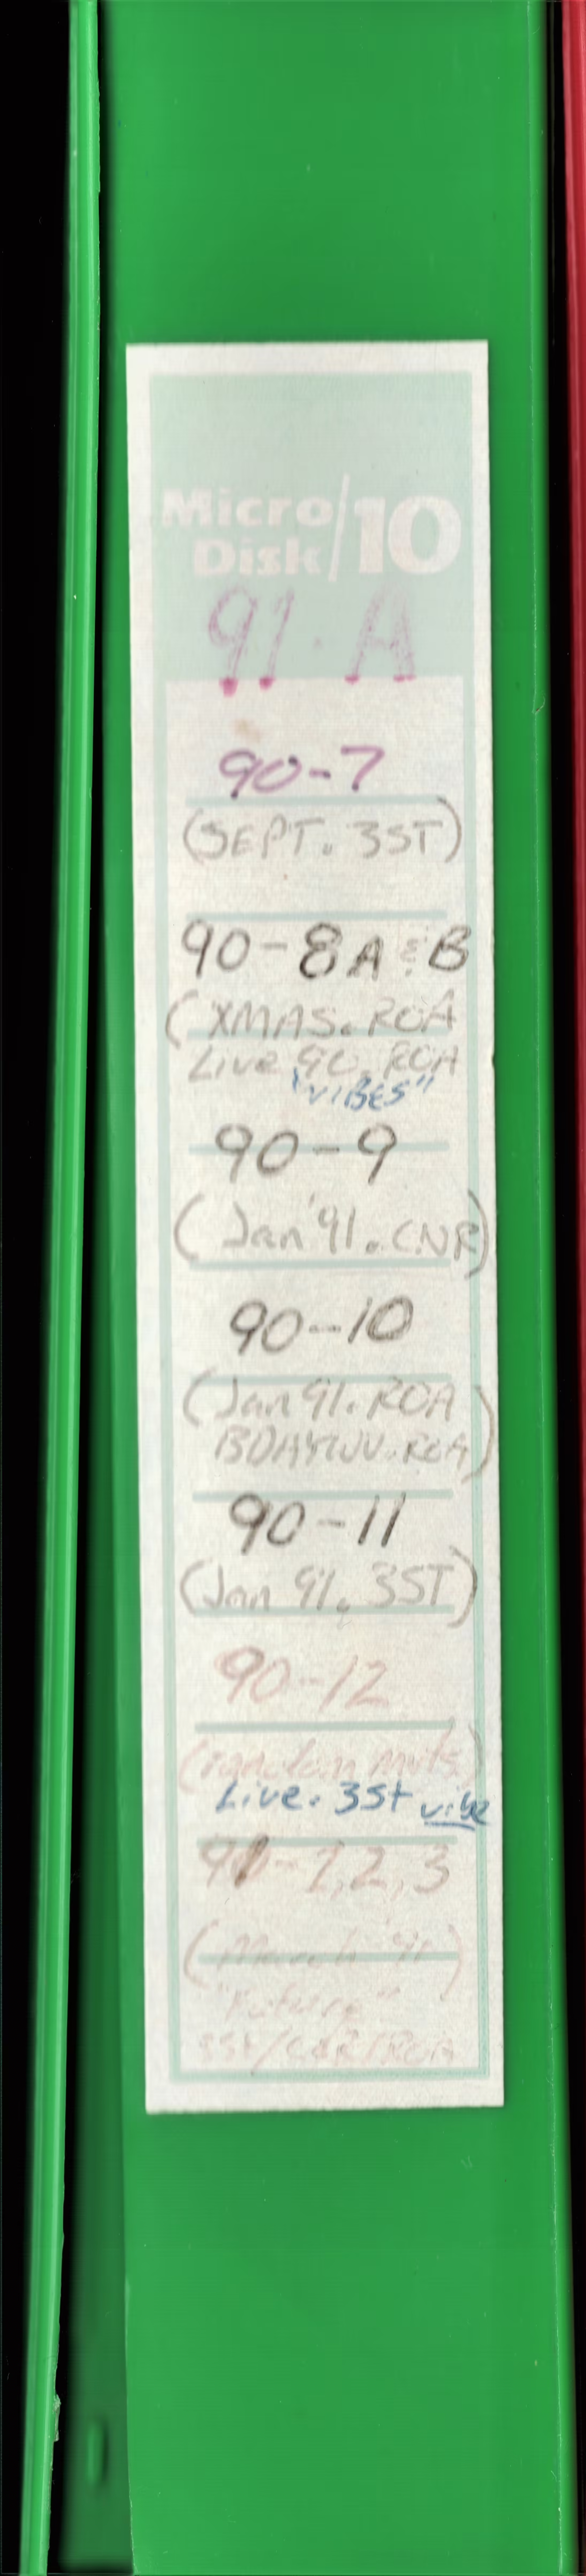 Micro
Disk/10
91·A
90-7
(SEPT. 3ST)
90-8A & B
(XMAS.ROA
Live 90.ROA
"VIBES"
90-9
(Jan '91.CNR)
90-10
(Jan 91.ROA
BDAYWV.ROA)
90-11
(Jan 91.3ST)
90-12
(random mvts.)
Live. 3St vibe
91-1,2,3
(March '91)
"Future"